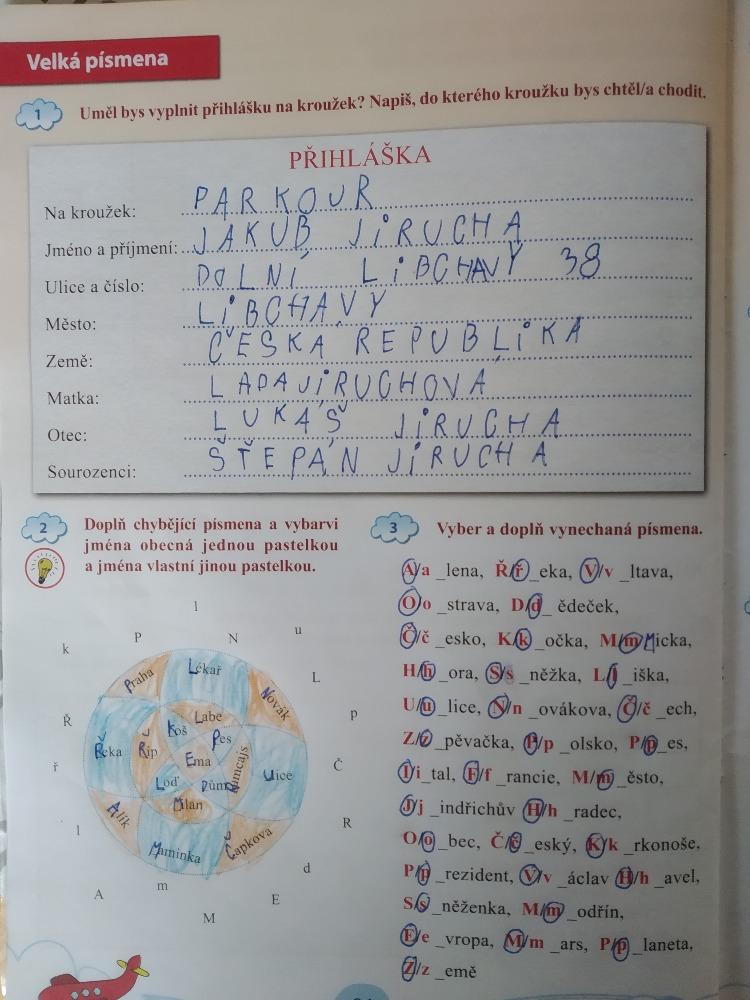 Velká písmena
1 Uměl bys vyplnit přihlášku na kroužek? Napiš, do kterého kroužku bys chtěl/a chodit.
PŘIHLÁŠKA
Na kroužek: PARKOUR
Jméno a příjmení: JAKUB JiRUCHA
Ulice a číslo: DOLNÍ LiBCHAVY 38
Město: LiBCHAVY
Země: ČESKÁ REPUBLiKA
Matka: LADA JiRUCHOVÁ
Otec: LUKÁŠ JiRUCHA
Sourozenci: ŠTĚPÁN JiRUCHA
2 Doplň chybějící písmena a vybarvi
jména obecná jednou pastelkou
a jména vlastní jinou pastelkou.
l
k P N u
Praha Lékař Novák L
Ř Koš Labe Pes p
Řeka Říp Ema Rumcajs Č
ř Loď Dům Ulice
Milan
l Alík Maminka Čapkova R
A m M E d
3 Vyber a doplň vynechaná písmena.
A/a _lena, Ř/ř _eka, V/v _ltava,
O/o _strava, D/d _ědeček,
Č/č _esko, K/k _očka, M/m Micka,
H/h _ora, S/s _něžka, L/l _iška,
U/u _lice, N/n _ovákova, Č/č _ech,
Z/z _pěvačka, P/p _olsko, P/p _es,
I/i _tal, F/f _rancie, M/m _ěsto,
J/j _indřichův H/h _radec,
O/o _bec, Č/č _eský, K/k _rkonoše,
P/p _rezident, V/v _áclav H/h _avel,
S/s _něženka, M/m _odřín,
E/e _vropa, M/m _ars, P/p _laneta,
Z/z _emě